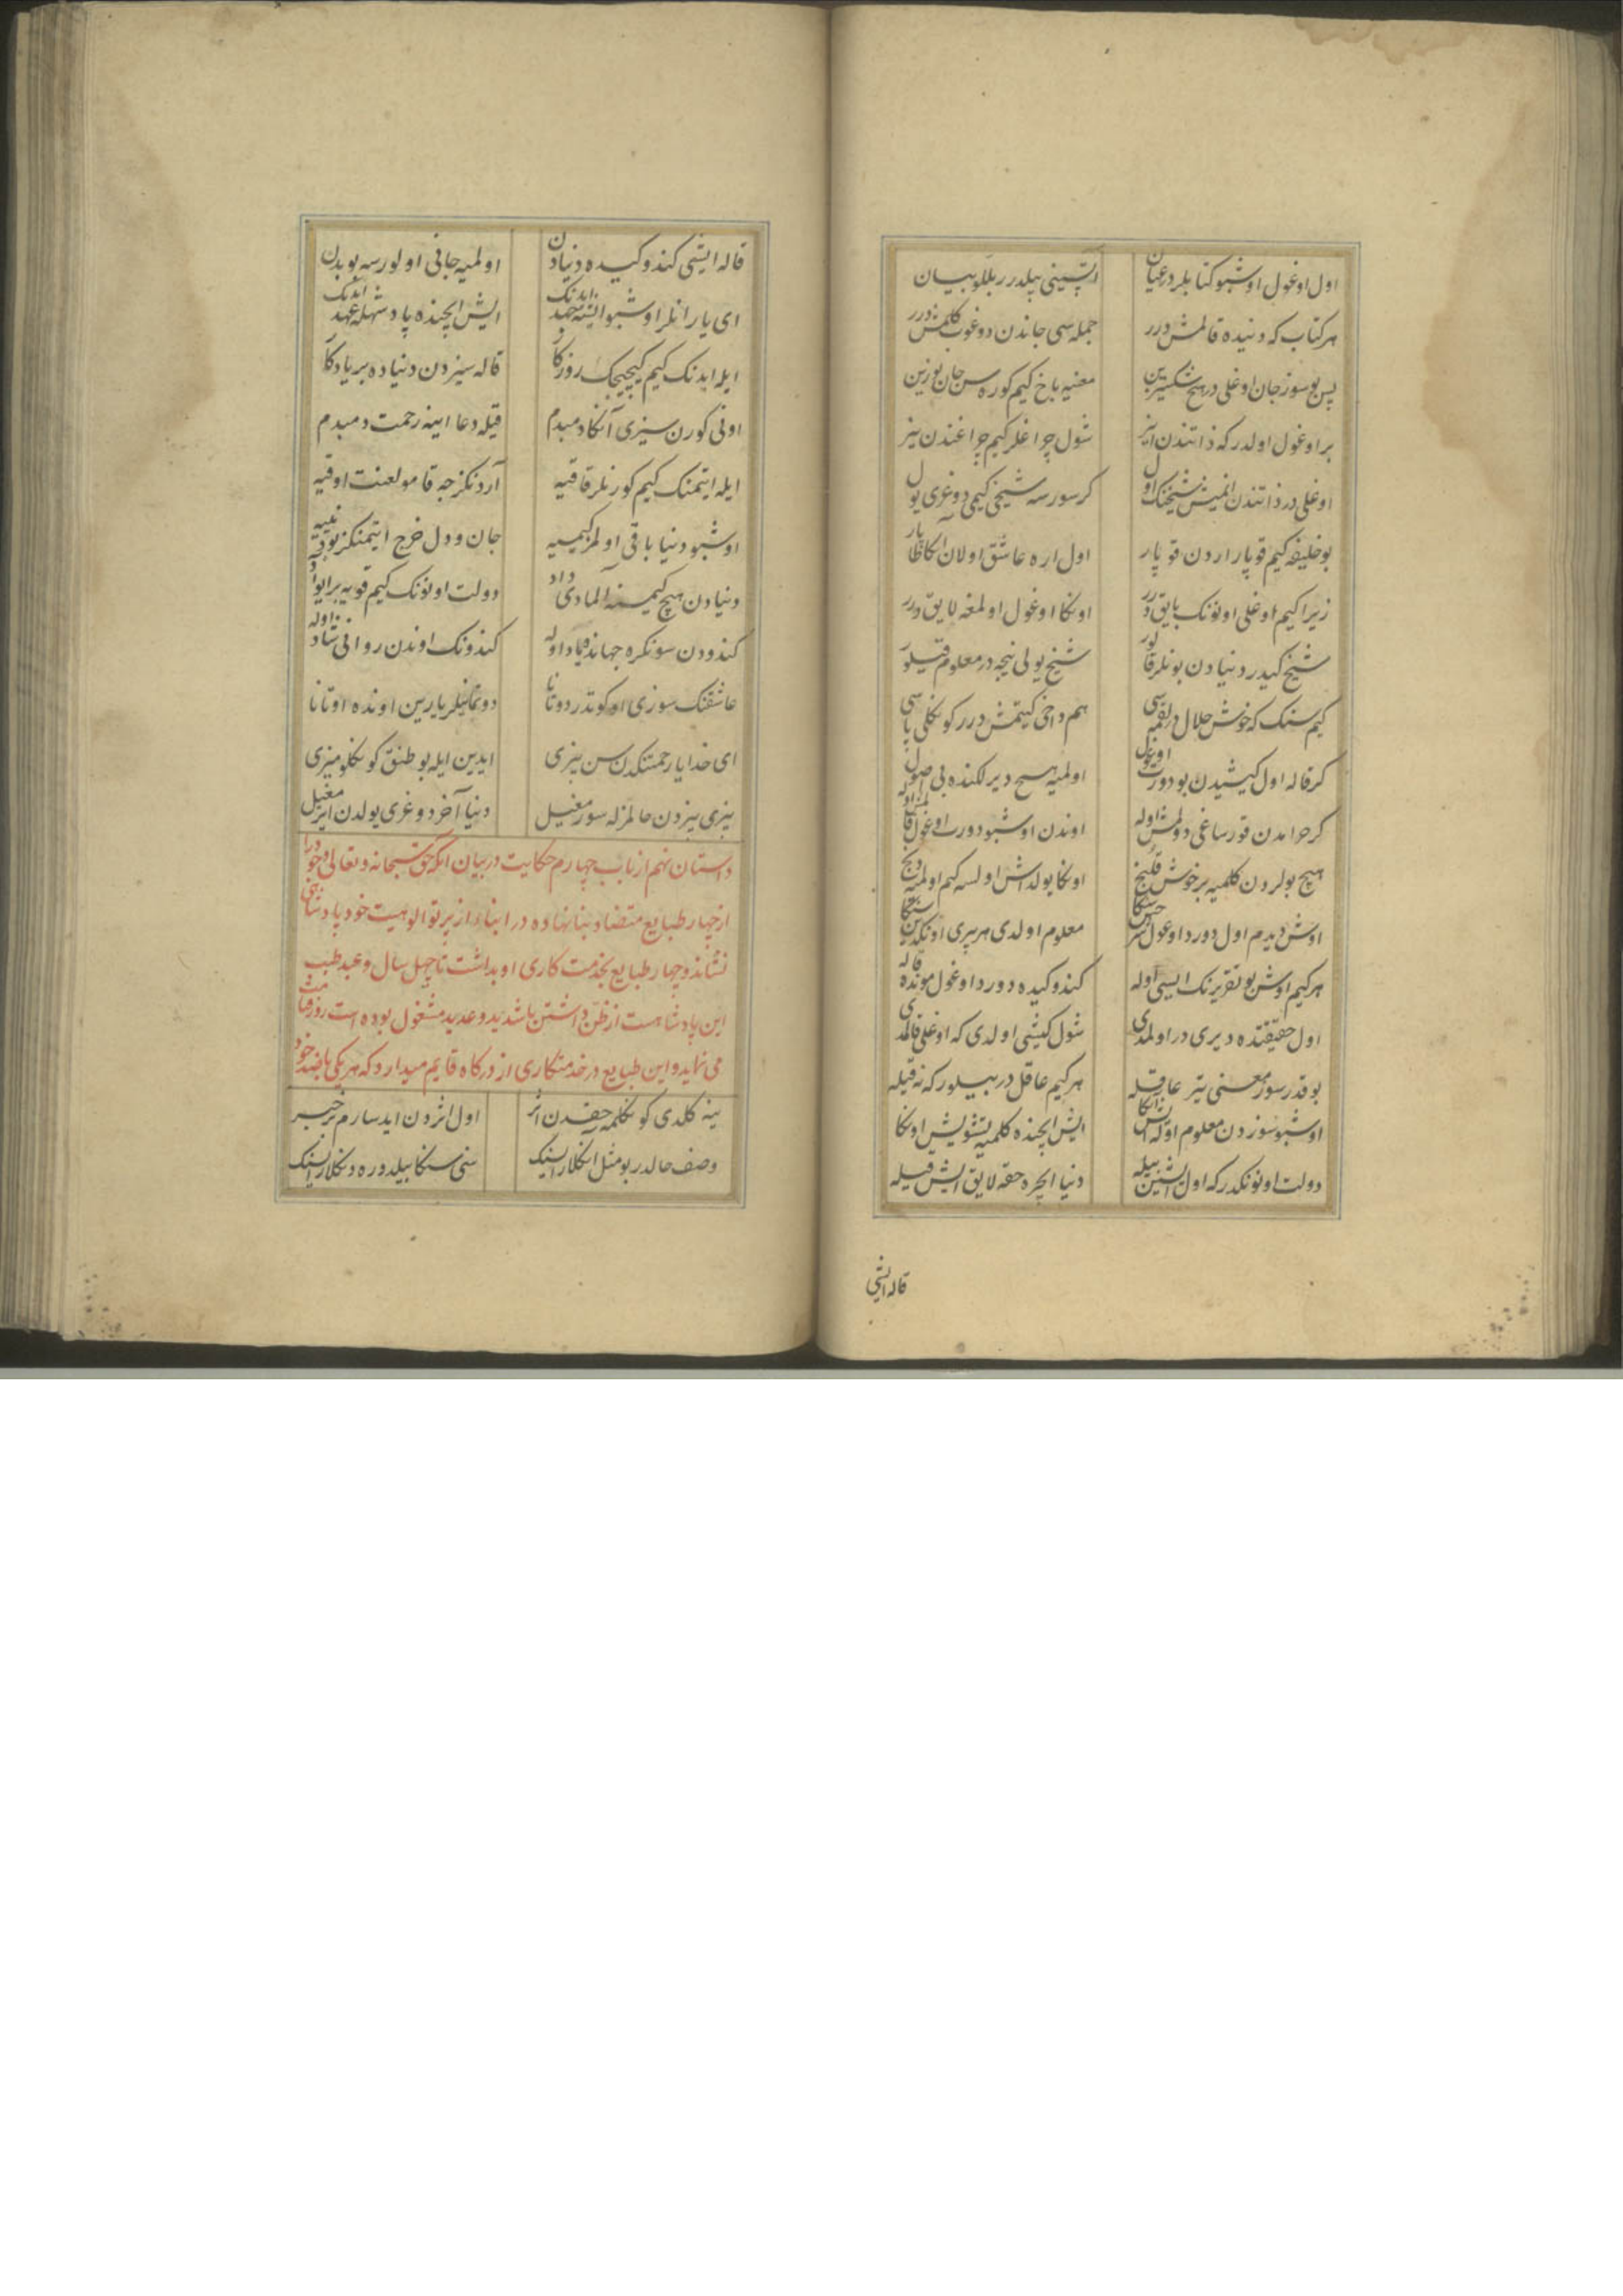 اول اوغول اوشبو کتابلر در عیان اتسینی بیلدرر بللو بیان
هر کتاب که دنیده قالمش درر جمله سی جاندن دوغوب کلمش درر
پس بو سوز جان اوغلی در هیچ شکسیزین معنیه باخ کیم کوره سن جان یوزین
بر اوغول اولدر که ذاتندن اینر شول چراغلر کیم چراغندن ینر
اوغلی در ذاتندن انمیش شیخنک اول کر سورسه شیخی کیمی دوغری یول
بو خلیفه کیم قوپار اردن قوپار اول اره عاشق اولان آکا طاپار
زیرا کیم اوغلی اونونک بایق درر اونکا اوغول اولمغه لایق درر
شیخ کیدر دنیادن بونلر قالور شیخ یولی نیجه در معلوم قیلور
کیم سنک که خوش حلال در لقمه سی هم داخی کیتمش درر کونکلی پاسی
کر قاله اول کیشیدن بو دورت اوغول اولمیه هیچ دیرلکنده بی اصول
کر حرامدن قورساغی دولمش اوله اوندن اوشبو دورت اوغول قالمز اوله
هیچ بولردن کلمیه بر خوش قلنج اونکا یولداش اولسه کیم اولمیه دنج
اوش دیدم اول دورد اوغول شرحن سنکا معلوم اولدی هر بیری اونکدین سنکا
هر کیم اوش بو تقریرنک ایسی اوله کندو کیده دورد اوغول مونده قاله
اول حقیقتده دیری در اولمدی شول کیشی اولدی که اوغلی قالمدی
بو قدر سوز معنی یتر عاقله هر کیم عاقل در بیلور که نه قیله
اوشبو سوزدن معلوم اوله ایش انکا ایش ایچنده کلمیه تشویش اونکا
دولت اونونکدر که اول ایشین بیله دنیا ایچره حقه لایق ایش قیله
قاله ایشی
قاله ایشی کندو کیده دنیادن اولمیه جانی اولورسه بو بدن
ای یارانلر اوشبو ایشه جهد ایدنک ایش ایچنده پادشهله عهد ایدنک
ایله ایدنک کیم کیچیجک روزکار قاله سیزدن دنیاده بر یادکار
اونی کورن سیزی آنکا دمبدم قیله دعا اینه رحمت دمبدم
ایله ایتمنک کیم کورنلر قاقیه آردنکزجه قامو لعنت اوقیه
اوشبو دنیا باقی اولمز کیمسیه جان و دل خرج ایتمنکز بو نسیه
دنیادن هیچ کیمسنه المادی داد دولت اونونک کیم قویه بر ایو آد
کندودن سونکره جهانده یاد اوله کندونک اوندن روانی شاد اوله
عاشقنک سوزی اوکوتدر دوتانا دوتماینلر یارین اونده اوتانا
ای خدایا رحمتنکدن سن بیزی ایدین ایله بو طنق کونکلومیزی
بیزی بیزدن حالمزله سورمغیل دنیا آخر دوغری یولدن ایرمغیل
داستان نهم از باب چهارم حکایت در بیان انکه حق سبحانه و تعالی وجود را
از چهار طبایع متضاد بنا نهاده در ابناء از پرتو الوهیت خود پادشاهی
نشاند و چهار طبایع بخدمت کاری او بداشت تا چهل سال و عبد طبب
این پادشاهست از ظن داشتن باشدید و عدید مشغول بوده است روز قیامت
می نماید و این طبایع در خدمتکاری از درکاه قایم میدارد که هر یکی باضد خود
ینه کلدی کونکلمه حقدن اثر اول اثردن ایدسارم بر خبر
وصف حالدر بو مثل انکلارایسنک سنی سنکا بیلدوره دنکلارایسنک